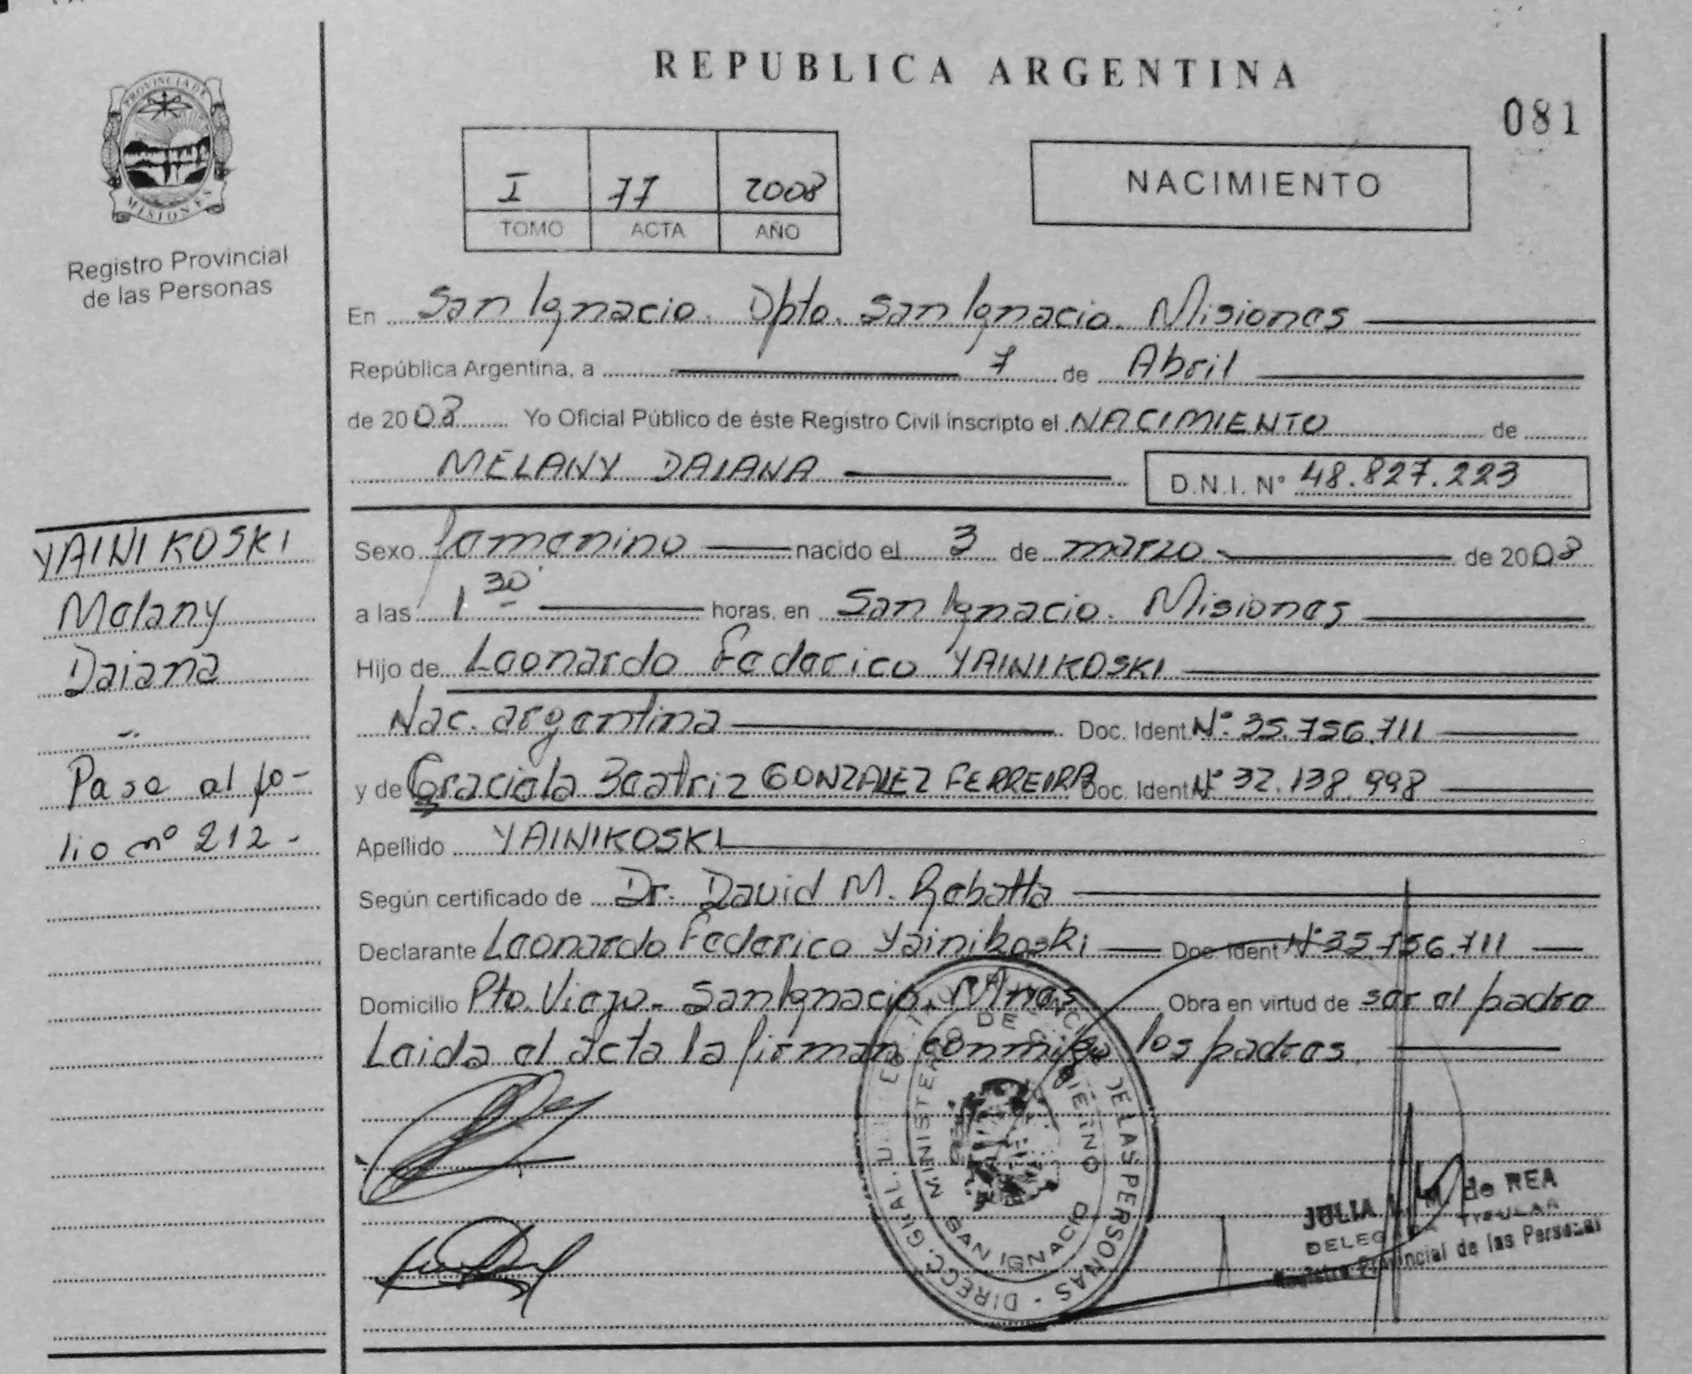 REPUBLICA ARGENTINA
081
PROVINCIA DE
MISIONES
Registro Provincial
de las Personas
I 77 2008
TOMO ACTA AÑO
NACIMIENTO
En San Ignacio. Dpto. San Ignacio. Misiones
República Argentina, a 7 de Abril
de 2008 Yo Oficial Público de éste Registro Civil inscripto el NACIMIENTO de
MELANY DAIANA D.N.I. N° 48.827.223
Sexo femenino nacido el 3 de marzo de 2008
a las 1 30' horas, en San Ignacio. Misiones
Hijo de Leonardo Federico YAINIKOSKI
Nac. argentina Doc. Ident N° 35.756.711
y de Graciela Beatriz GONZALEZ FERREIRA Doc. Ident N° 32.138.998
Apellido YAINIKOSKI
Según certificado de Dr. David M.
Declarante Leonardo Federico Yainikoski Doc. Ident N° 35.756.711
Domicilio Pto. Viejo - San Ignacio. Mnes Obra en virtud de ser el padre
Leida el acta la firman conmigo los padres.
YAINIKOSKI
Melany
Daiana
Pase al fo-
lio nº 212 -
DE LAS PERSONAS - DIRECC. GRAL.
MINISTERIO DE GOBIERNO
SAN IGNACIO
JULIA M. de REA
DELEGADA TITULAR
Registro Provincial de las Personas